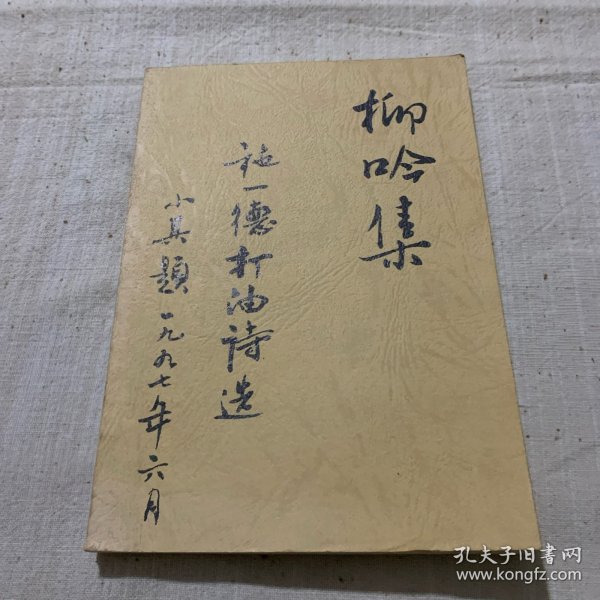 柳吟集
施一德打油诗选
小其题 一九九七年六月
孔夫子旧书网
www.kongfz.com